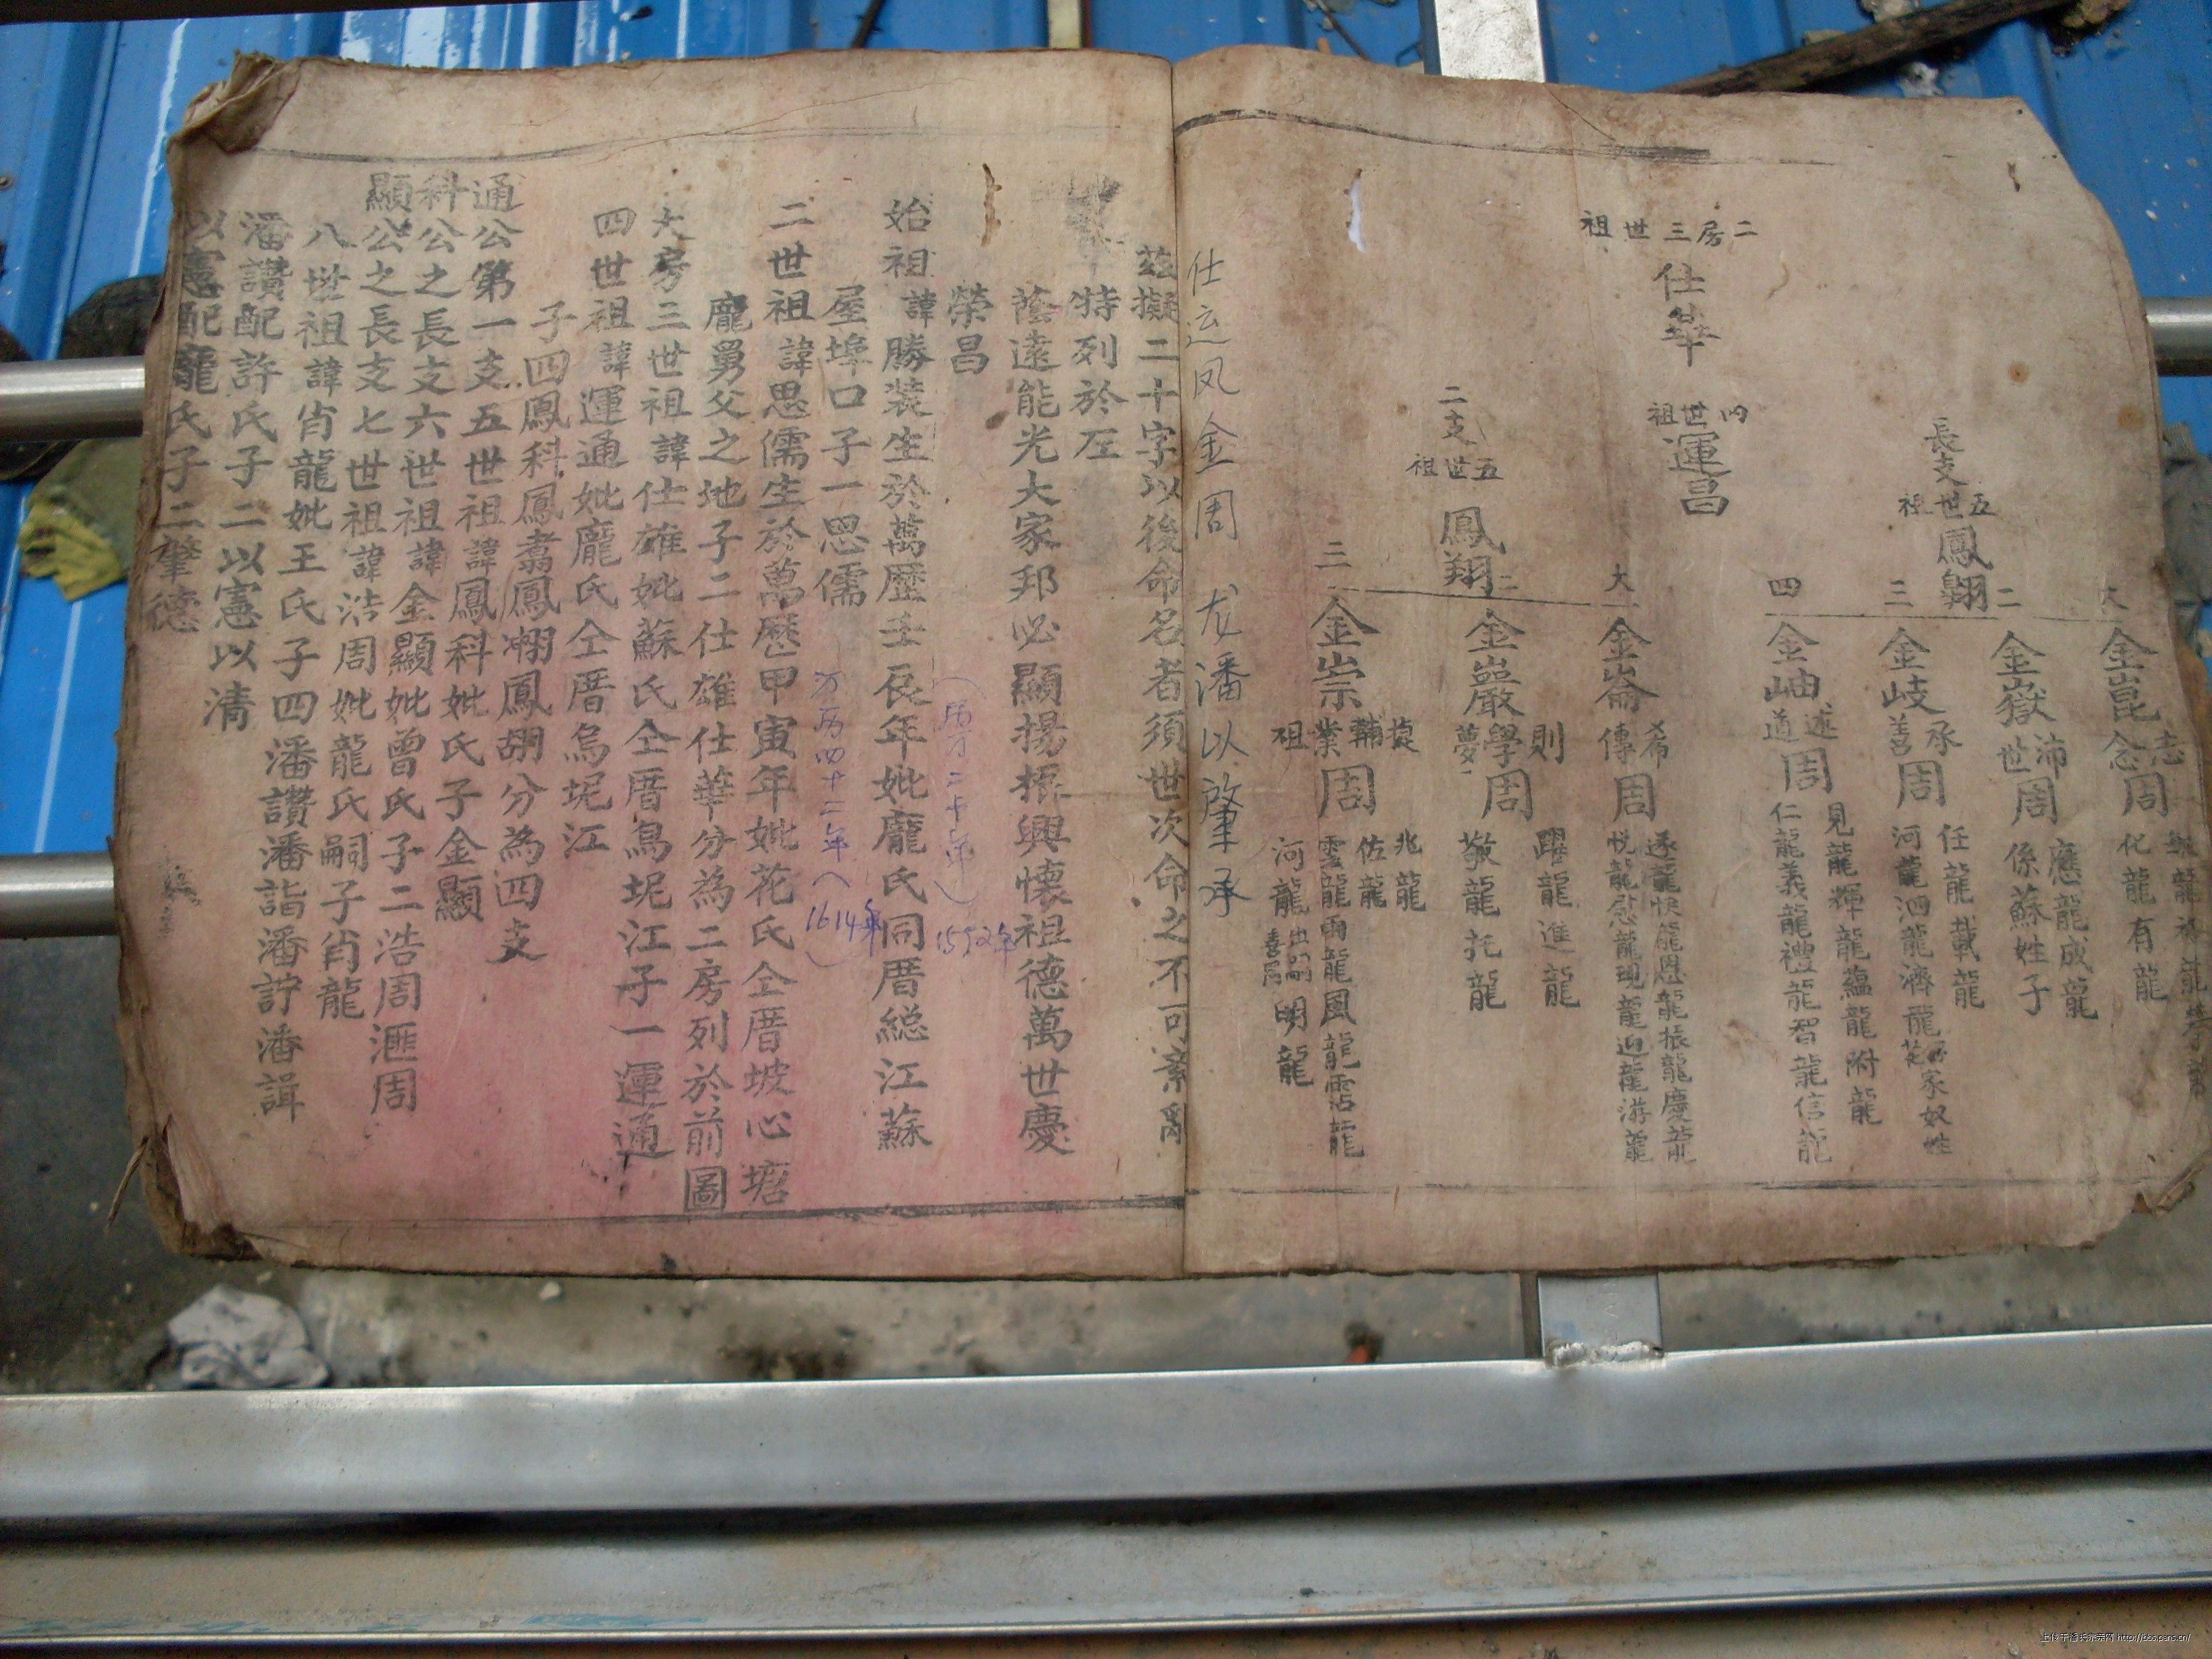 二房三世祖
仕華
四世祖
運昌
長支
五世祖
鳳翺
大 二 三 四
金崑 志周 念周
化龍 有龍
金嶽 沛周 世周
應龍 成龍
係蘇姓子
金岐 承周 善周
任龍 載龍
河龍 泗龍 濟龍
家奴姓
金岫 述周 道周
見龍 輝龍 蘊龍 附龍
仁龍 義龍 禮龍 智龍 信龍
二支
五世祖
鳳翔
大 二 三
金崙 希周 傳周
遂龍 快龍 恩龍 振龍 慶龍
悅龍 慰龍 現龍 迎龍 游龍
金巖 則周 學周 夢周
躍龍 進龍
敬龍 托龍
金崇 輔周 業周 祖周
兆龍
佐龍
雲龍 雨龍 風龍 霑龍
河龍 出嗣 明龍
仕运凤金周 龙潘以肇承
茲擬二十字以後命名者須世次命之不可紊亂
特列於左
蔭遠能光大家邦必顯揚振興懷祖德萬世慶
榮昌
始祖諱勝裝生於萬歷壬辰年妣龐氏同厝総江蘇
屋埠口子一思儒
二世祖諱思儒生於萬歷甲寅年妣花氏仝厝坡心塘
龐舅父之地子二仕雄仕華分為二房列於前圖
大房三世祖諱仕雄妣蘇氏仝厝烏坭江子一運通
四世祖諱運通妣龐氏仝厝烏坭江
子四鳳科鳳翥鳳翀鳳翙分為四支
通公第一支五世祖諱鳳科妣氏子金顯
科公之長支六世祖諱金顯妣曾氏子二浩周滙周
顯公之長支七世祖諱浩周妣龍氏嗣子肖龍
八世祖諱肖龍妣王氏子四潘讚潘詣潘詝潘諿
潘讚配許氏子二以憲以清
以憲配龐氏子二肇德
万历四十二年(1614年)
1592年
http://bbs.pans.cn/